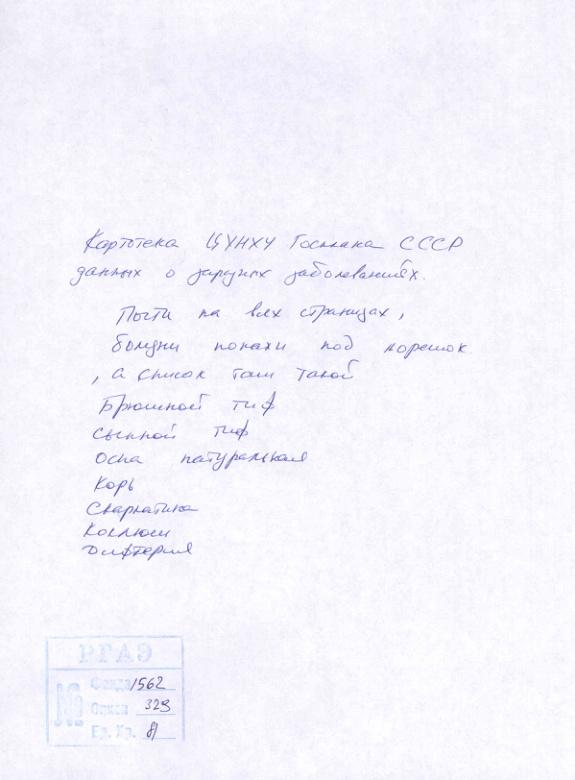 Картотека ЦУНХУ Госплана СССР
данных о заразных заболеваниях.
Почти на всех страницах,
болезни попали под корешок
, а список там такой
Брюшной тиф
сыпной тиф
Оспа натуральная
Корь
Скарлатина
Коклюш
Дифтерия
РГАЭ
№
Фонд 1562
Опись 329
Ед. Хр.